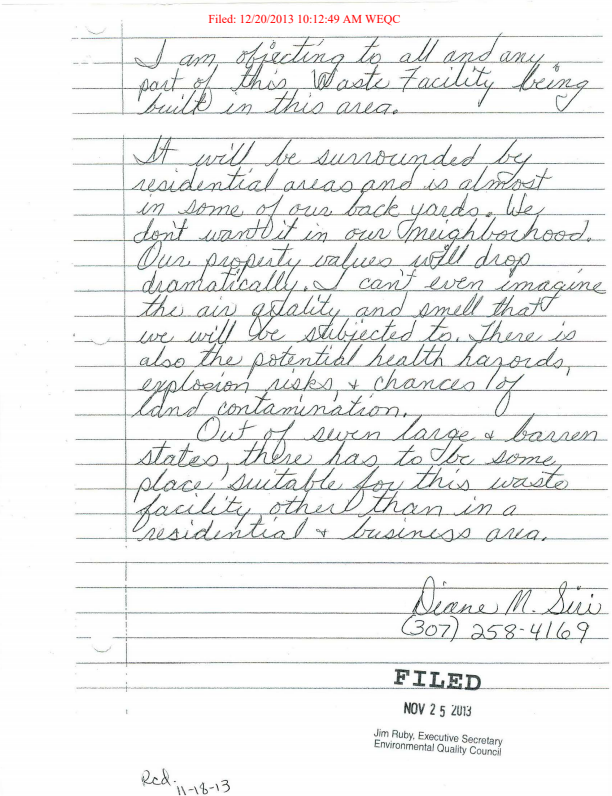 Filed: 12/20/2013 10:12:49 AM WEQC
I am objecting to all and any
part of this Waste Facility being
built in this area.
It will be surrounded by
residential areas and is almost
in some of our back yards. We
don't want it in our neighborhood.
Our property values will drop
dramatically. I can't even imagine
the air quality and smell that
we will be subjected to. There is
also the potential health hazords,
explosion risks, & chances of
land contamination.
Out of seven large & barren
states, there has to be some
place suitable for this waste
facility other than in a
residential & business area.
Diane M. Siri
(307) 258-4169
FILED
NOV 25 2013
Jim Ruby, Executive Secretary
Environmental Quality Council
Rcd. 11-18-13